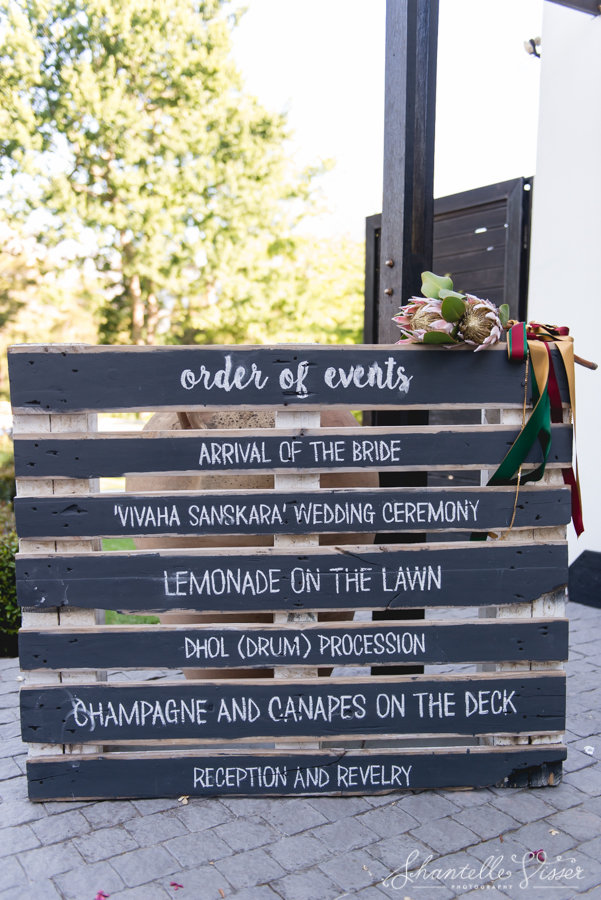 order of events
ARRIVAL OF THE BRIDE
'VIVAHA SANSKARA' WEDDING CEREMONY
LEMONADE ON THE LAWN
DHOL (DRUM) PROCESSION
CHAMPAGNE AND CANAPES ON THE DECK
RECEPTION AND REVELRY
Shantelle Visser
PHOTOGRAPHY